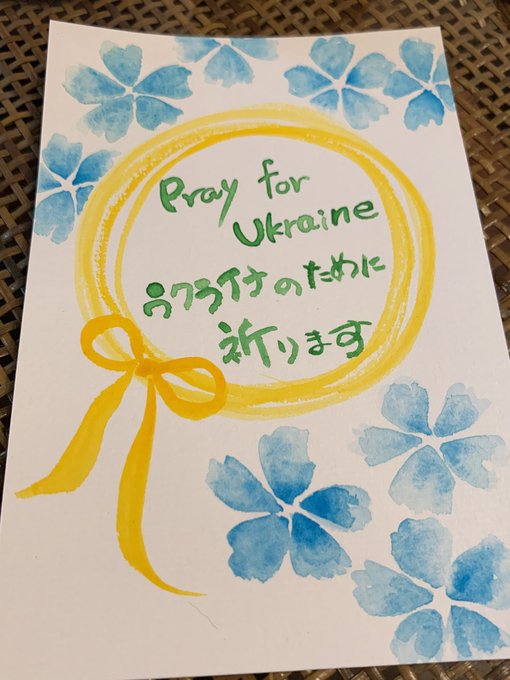 Pray for
Ukraine
ウクライナのために
祈ります